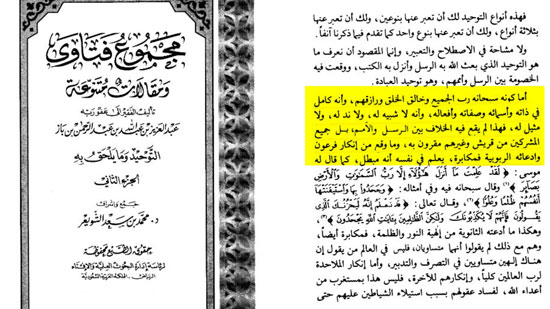 مجموع فتاوى
ومقالات متنوعة
تأليف الفقير إلى عفو ربه
عبد العزيز بن عبد الله بن عبد الرحمن بن باز
التوحيد وما يلحق به
الجزء الثاني
جمع وإشراف
د. محمد بن سعد الشويعر
فهذه أنواع التوحيد لك أن تعبر عنها بنوعين، ولك أن تعبر عنها
بثلاثة أنواع، ولك أن تعبر عنها بنوع واحد كما تقدم فيما ذكرنا آنفاً.
ولا مشاحة في الاصطلاح والتعبير، وإنما المقصود أن نعرف ما
هو التوحيد الذي بعث الله به الرسل وأنزل به الكتب، ووقعت فيه
الخصومة بين الرسل وأممهم، وهو توحيد العبادة.
أما كونه سبحانه رب الجميع وخالق الخلق ورازقهم، وأنه كامل
في ذاته وأسمائه وصفاته وأفعاله، وأنه لا شبيه له، ولا ند له، ولا
مثيل له، فهذا لم يقع فيه الخلاف بين الرسل والأمم، بل جميع
المشركين من قريش وغيرهم مقرون به، وما وقع من إنكار فرعون
وادعائه الربوبية فمكابرة، يعلم في نفسه أنه مبطل، كما قال له
موسى: ﴿لَقَدْ عَلِمْتَ مَا أَنزَلَ هَٰؤُلَاءِ إِلَّا رَبُّ السَّمَاوَاتِ وَالْأَرْضِ
بَصَائِرَ﴾ وقال سبحانه فيه وفي أمثاله: ﴿وَجَحَدُوا بِهَا وَاسْتَيْقَنَتْهَا
أَنفُسُهُمْ ظُلْمًا وَعُلُوًّا﴾ وقال تعالى: ﴿قَدْ نَعْلَمُ إِنَّهُ لَيَحْزُنُكَ الَّذِي
يَقُولُونَ فَإِنَّهُمْ لَا يُكَذِّبُونَكَ وَلَٰكِنَّ الظَّالِمِينَ بِآيَاتِ اللَّهِ يَجْحَدُونَ﴾
وهكذا ما أدعته الثانوية من إلهية النور والظلمة، فمكابرة أيضاً،
وهم مع ذلك لم يقولوا أنهما متساويان، فليس في العالم من يقول إن
هناك إلهين متساويين في التصرف والتدبير، وأما إنكار الملاحدة
لرب العالمين كلياً، وإنكارهم للآخرة، فليس هذا بمستغرب من
أعداء الله، لفساد عقولهم بسبب استيلاء الشياطين عليهم حتى